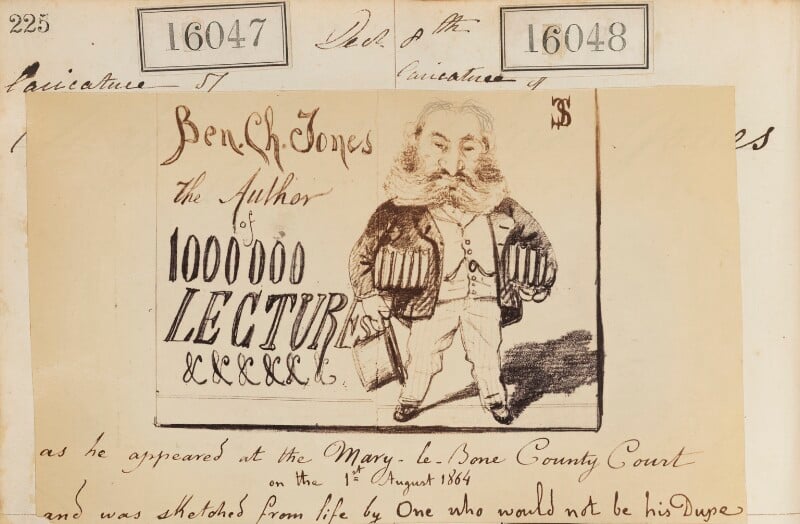 225
16047
Dec 8th
16048
Caricature of
Caricature of
es
Ben. Ch. Jones
The Author
of
1000000
LECTURES
& & & & & &
as he appeared at the Mary-le-Bone County Court
on the 1st August 1864
and was sketched from life by One who would not be his Dupe